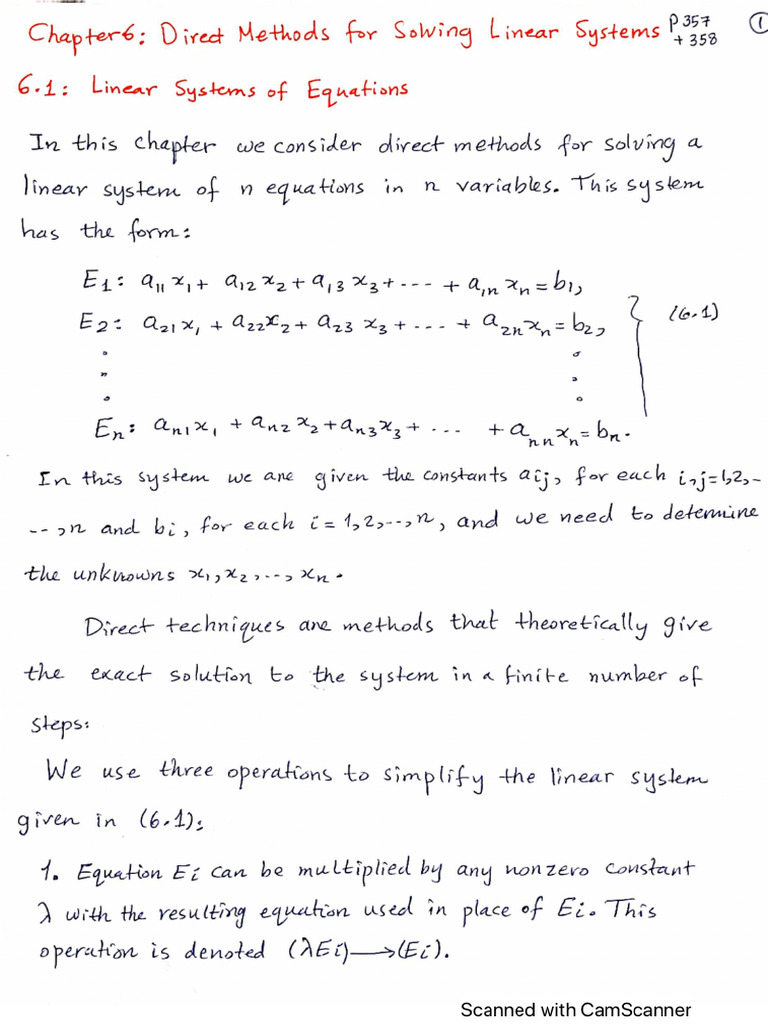 Chapter6: Direct Methods for Solving Linear Systems P 357 + 358 ①
6.1: Linear Systems of Equations
In this chapter we consider direct methods for solving a
linear system of n equations in n variables. This system
has the form:
E1: a11 x1 + a12 x2 + a13 x3 + --- + a1n xn = b1,
E2: a21 x1 + a22 x2 + a23 x3 + ... + a2n xn = b2, } (6.1)
. .
. .
. .
En: an1 x1 + an2 x2 + an3 x3 + ... + ann xn = bn.
In this system we are given the constants aij, for each i,j=1,2,-
--,n and bi, for each i = 1,2,--,n, and we need to detemine
the unknowns x1, x2, --, xn.
Direct techniques are methods that theoretically give
the exact solution to the system in a finite number of
steps:
We use three operations to simplify the linear system
given in (6.1):
1. Equation Ei can be multiplied by any nonzero constant
λ with the resulting equation used in place of Ei. This
operation is denoted (λEi)⟶(Ei).
Scanned with CamScanner